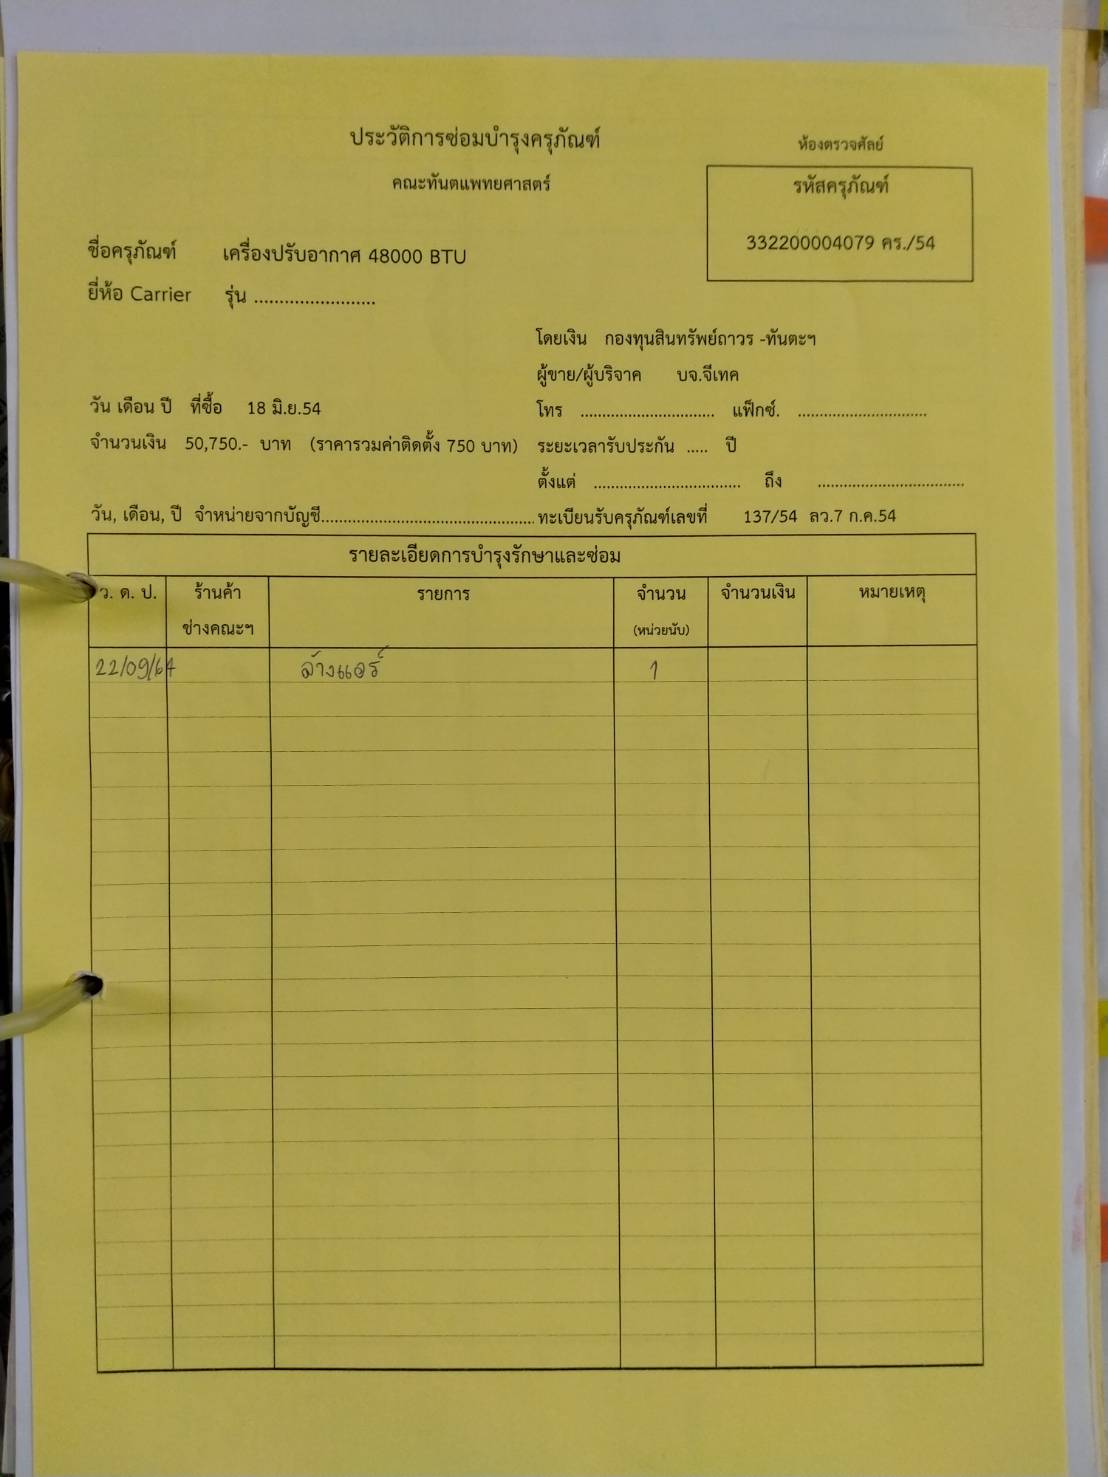 ประวัติการซ่อมบำรุงครุภัณฑ์
ห้องตรวจศัลย์
คณะทันตแพทยศาสตร์
รหัสครุภัณฑ์
332200004079 คร./54
ชื่อครุภัณฑ์ เครื่องปรับอากาศ 48000 BTU
ยี่ห้อ Carrier รุ่น ........................
โดยเงิน กองทุนสินทรัพย์ถาวร -ทันตะฯ
ผู้ขาย/ผู้บริจาค บจ.จีเทค
วัน เดือน ปี ที่ซื้อ 18 มิ.ย.54 โทร ................................ แฟ็กซ์. ...............................
จำนวนเงิน 50,750.- บาท (ราคารวมค่าติดตั้ง 750 บาท) ระยะเวลารับประกัน ..... ปี
ตั้งแต่ ................................... ถึง ...................................
วัน, เดือน, ปี จำหน่ายจากบัญชี................................................... ทะเบียนรับครุภัณฑ์เลขที่ 137/54 ลว.7 ก.ค.54
รายละเอียดการบำรุงรักษาและซ่อม
ว. ด. ป. ร้านค้า รายการ จำนวน จำนวนเงิน หมายเหตุ
ช่างคณะฯ (หน่วยนับ)
22/09/64 ล้างแอร์ 1